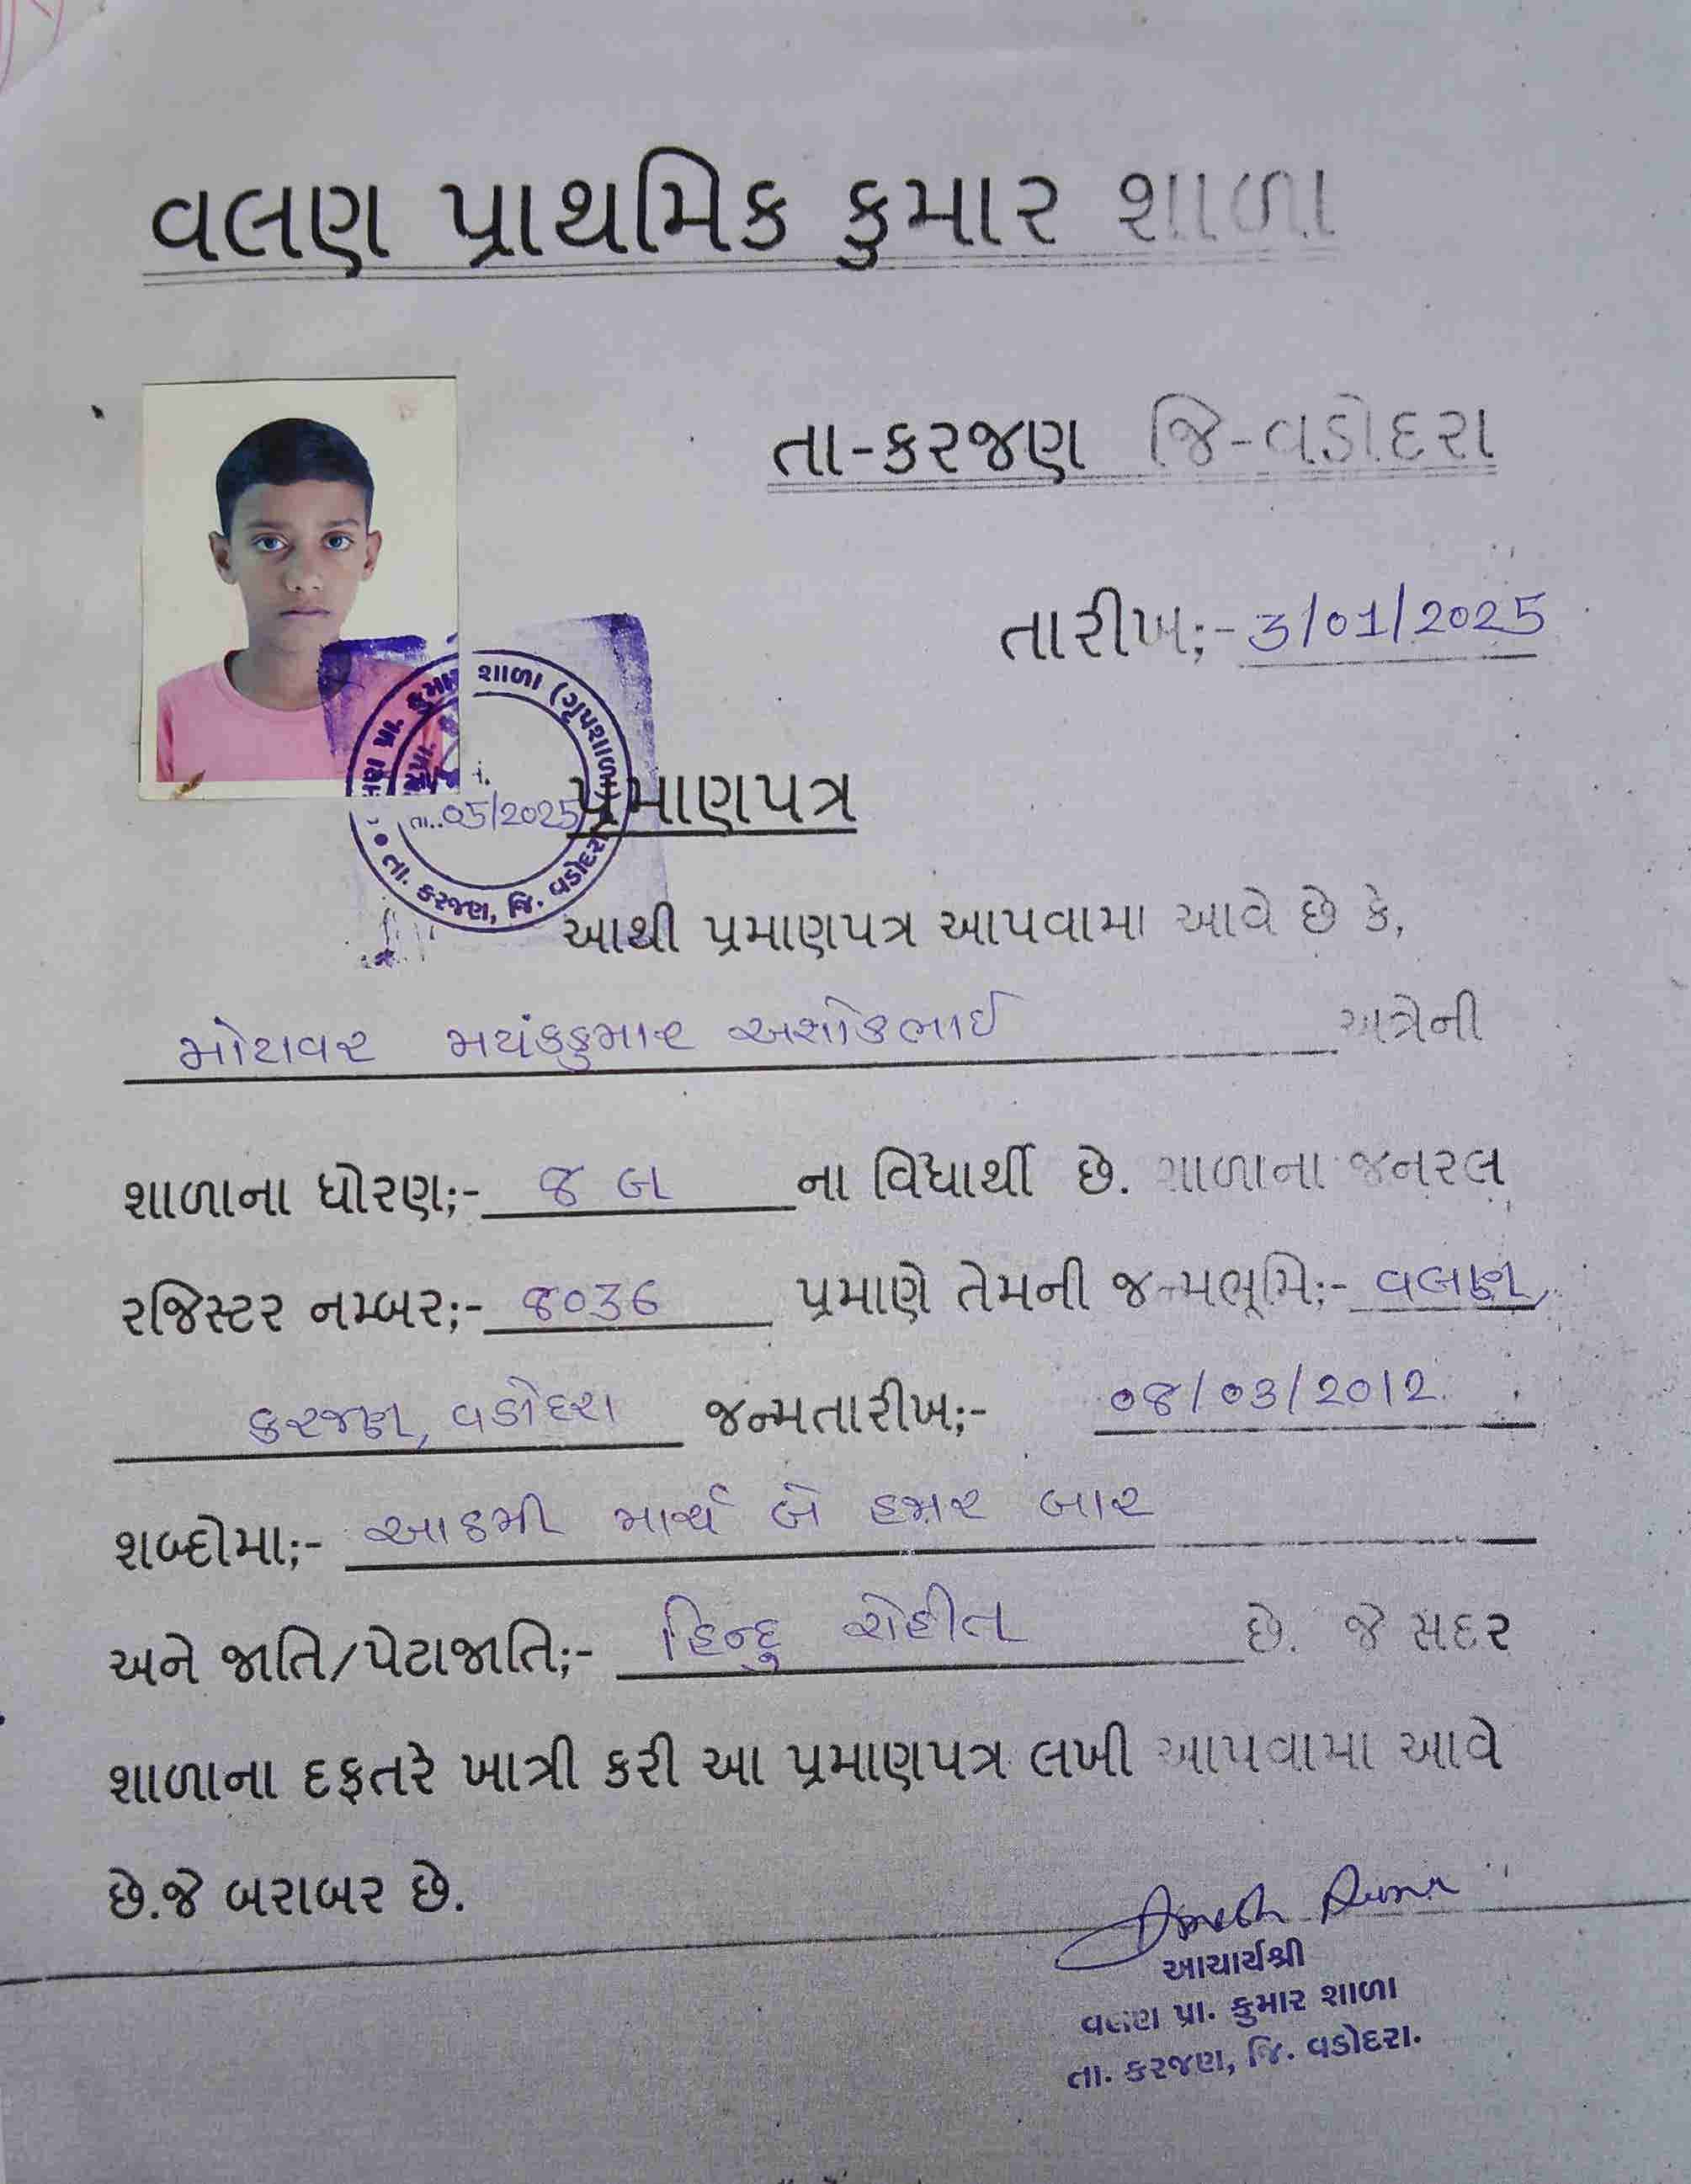 વલણ પ્રાથમિક કુમાર શાળા
તા-કરજણ જિ-વડોદરા
તારીખ;- 3/01/2025
કુમાર શાળા (ગૃપશાળા)
તા..05/2025
તા. કરજણ, જિ. વડોદરા
પ્રમાણપત્ર
આથી પ્રમાણપત્ર આપવામા આવે છે કે,
મોટાવર મયંકકુમાર અશોકભાઈ અત્રેની
શાળાના ધોરણ;- ૭ બ ના વિધાર્થી છે. શાળાના જનરલ
રજિસ્ટર નમ્બર;- ૪036 પ્રમાણે તેમની જન્મભૂમિ;- વલણ,
કરજણ, વડોદરા જન્મતારીખ;- 0૮/03/2012
શબ્દોમા;- આઠમી માર્ચ બે હજાર બાર
અને જાતિ/પેટાજાતિ;- હિન્દુ રોહીત છે. જે સદર
શાળાના દફતરે ખાત્રી કરી આ પ્રમાણપત્ર લખી આપવામા આવે
છે.જે બરાબર છે.
આચાર્યશ્રી
વલણ પ્રા. કુમાર શાળા
તા. કરજણ, જિ. વડોદરા.